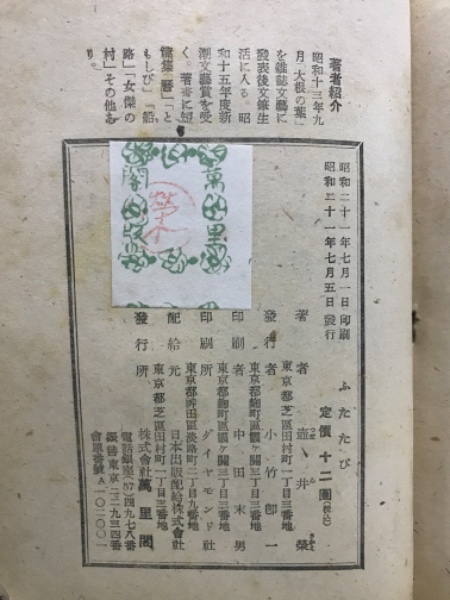 著者紹介
昭和十三年九
月「大根の葉」
を雑誌文藝に
發表後文筆生
活に入る。昭
和十五年度新
潮文藝賞を受
く。著書に短
篇集「暦」「と
もしび」「船
路」「女傑の
村」その他あ
り。
昭和二十一年七月一日印刷
昭和二十一年七月五日發行
ふたたび
定價 十二圓
著者 壺井榮
東京都芝區田村町一丁目三番地
發行者 小竹卽一
東京都麹町區霞ヶ關三丁目三番地
印刷者 中田末男
東京都麹町區霞ヶ關三丁目三番地
印刷所 ダイヤモンド社
東京都神田區淡路町二丁目九番地
配給元 日本出版配給株式會社
東京都芝區田村町一丁目三番地
發行所 株式會社 萬里閣
電話銀座(57)四九七八番
振替東京一二九三四番
會員番號A一〇二〇一
萬里
閣